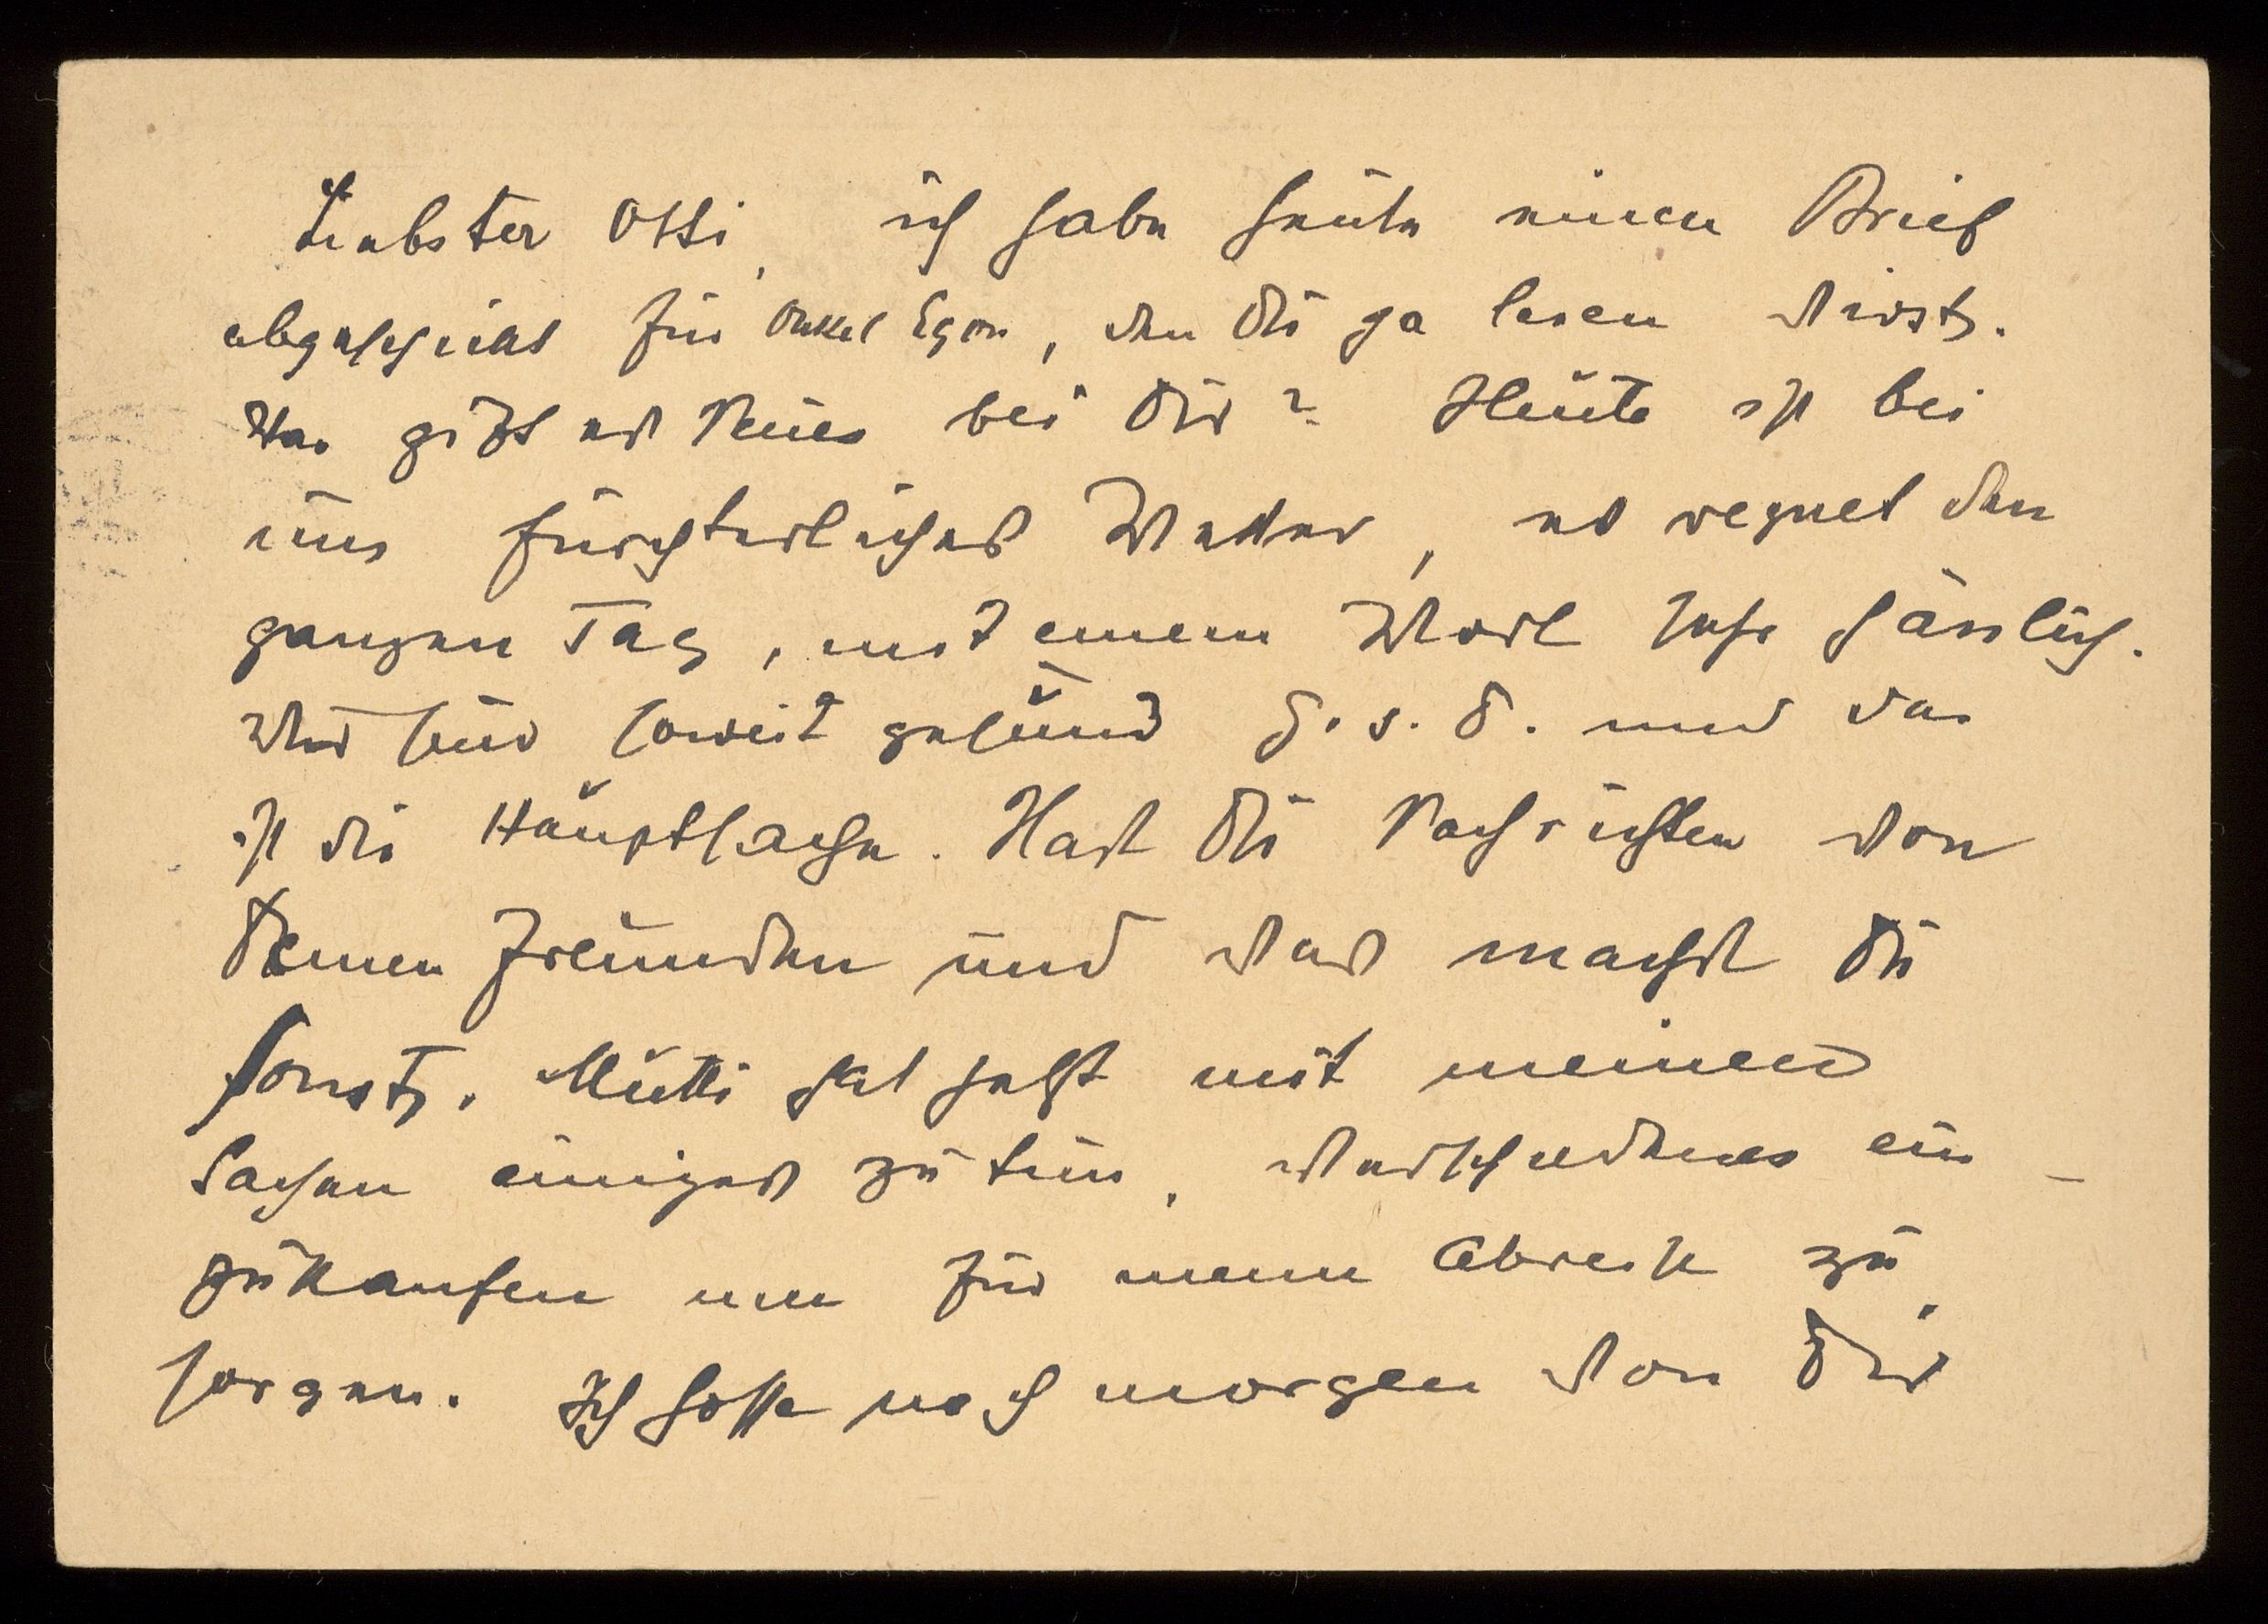 Liebster Otti, ich habe heute einen Brief
abgeschickt für Onkel Egon, den Du ja lesen wirst.
Was gibt es Neues bei Dir? Heute ist bei
uns fürchterliches Wetter, es regnet den
ganzen Tag, mit einem Wort sehr hässlich.
Wir sind soweit gesund G. s. D. und das
ist die Hauptsache. Hast Du Nachrichten von
Deinen Freunden und was machst Du
sonst. Mutti hat jetzt mit meinen
Sachen einiges zu tun, verschiedenes ein-
zukaufen um für meine Abreise zu
sorgen. Ich hoffe noch morgen von Dir